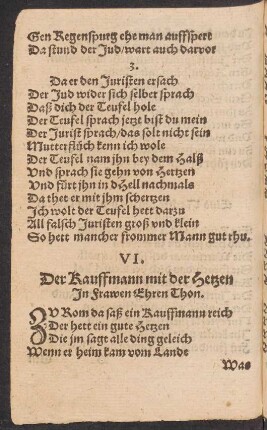 Gen Regenspurg ehe man auffspert
Da stund der Jud/wart auch darvor
3.
Da er den Juristen ersach
Der Jud wider sich selber sprach
Daß dich der Teufel hole
Der Teufel sprach jetzt bist du mein
Der Jurist sprach/das solt nicht sein
Mutterstück kenn ich wole
Der Teufel nam jhn bey dem Halß
Vnd sprach sie gehn von Hertzen
Vnd fürt jhn in d Hell nachmals
Da thet er mit jhm schertzen
Ich wolt der Teufel hett darzu
All falsch Juristen groß vnd klein
So hett mancher frommer Mann gut rhu.
VI.
Der Kauffmann mit der Hetzen
In Frawen Ehren Thon.
ZV Rom da saß ein Kauffmann reich
Der hett ein gute Hetzen
Die jm sagt alle ding geleich
Wenn er heim kam vom Lande
Was